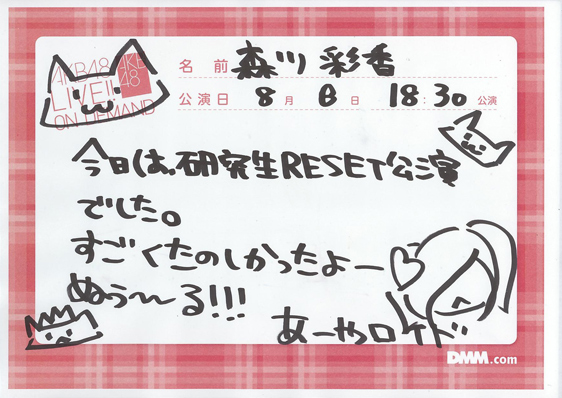 AKB48
LIVE!!
ON DEMAND
AKB
48
名前 森川 彩香
公演日 8月 6日 18:30 公演
今日は、研究生RESET公演
でした。
すごくたのしかったよー
ぬぅ〜る!!!
あーやロイド
DMM.com